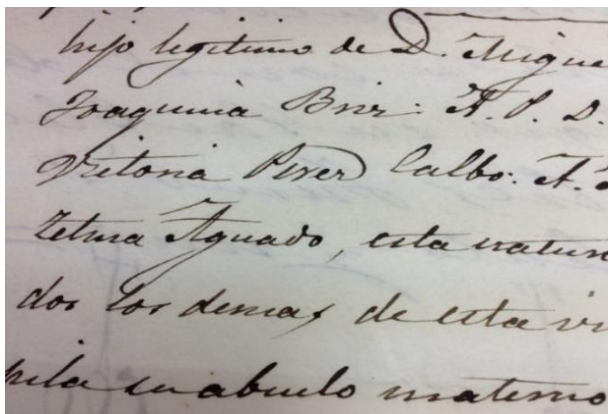 hijo legitimo de D. Migue
Joaquina Briz: A. P. D.
Vitoria Perez Calbo: A.
Zetina Aguado, esta natur
dos los demas de esta vi
pila su abuelo materno